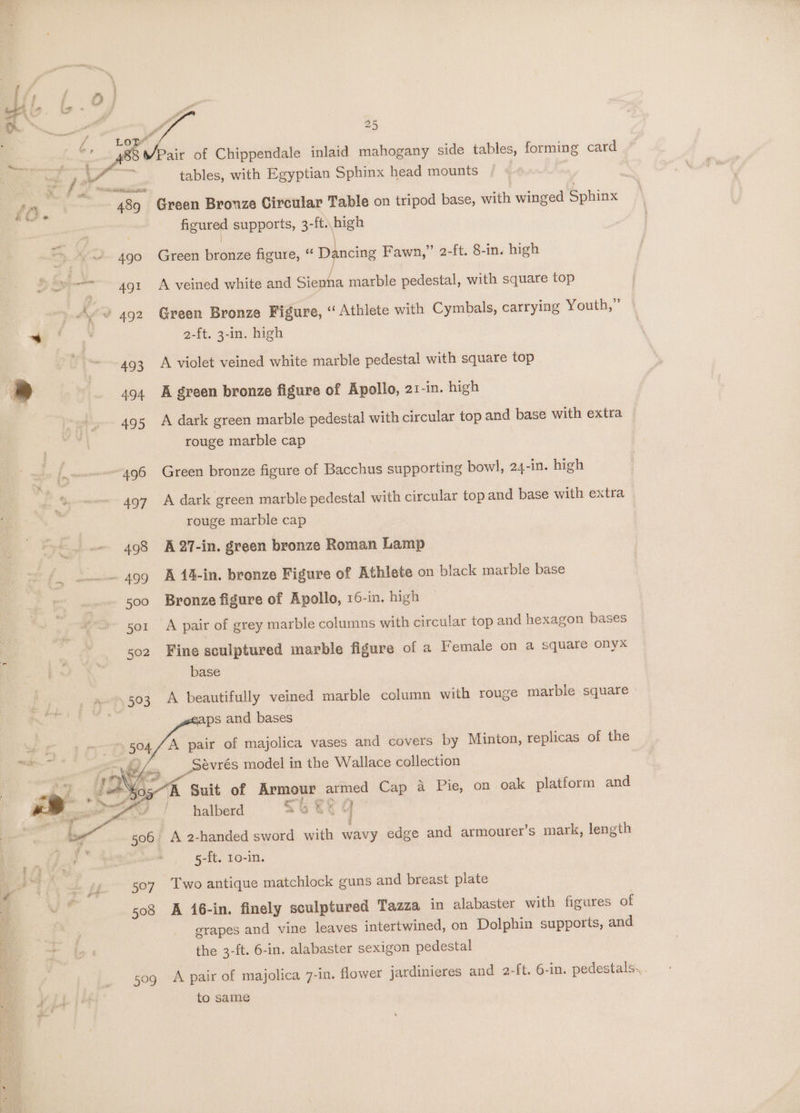 25
LOT
488 Pair of Chippendale inlaid mahogany side tables, forming card
tables, with Egyptian Sphinx head mounts
489 Green Bronze Circular Table on tripod base, with winged Sphinx
figured supports, 3-ft. high
490 Green bronze figure, “ Dancing Fawn,” 2-ft. 8-in. high
491 A veined white and Sienna marble pedestal, with square top
492 Green Bronze Figure, “ Athlete with Cymbals, carrying Youth,”
2-ft. 3-in. high
493 A violet veined white marble pedestal with square top
494 A green bronze figure of Apollo, 21-in. high
495 A dark green marble pedestal with circular top and base with extra
rouge marble cap
496 Green bronze figure of Bacchus supporting bowl, 24-in. high
497 A dark green marble pedestal with circular top and base with extra
rouge marble cap
498 A 27-in. green bronze Roman Lamp
499 A 14-in. bronze Figure of Athlete on black marble base
500 Bronze figure of Apollo, 16-in. high
501 A pair of grey marble columns with circular top and hexagon bases
502 Fine sculptured marble figure of a Female on a square onyx
base
503 A beautifully veined marble column with rouge marble square
caps and bases
504 A pair of majolica vases and covers by Minton, replicas of the
Sèvrés model in the Wallace collection
505 A Suit of Armour armed Cap à Pie, on oak platform and
halberd
506 A 2-handed sword with wavy edge and armourer's mark, length
5-ft. 10-in.
507 Two antique matchlock guns and breast plate
508 A 16-in. finely sculptured Tazza in alabaster with figures of
grapes and vine leaves intertwined, on Dolphin supports, and
the 3-ft. 6-in. alabaster sexigon pedestal
509 A pair of majolica 7-in. flower jardinieres and 2-ft. 6-in. pedestals
to same